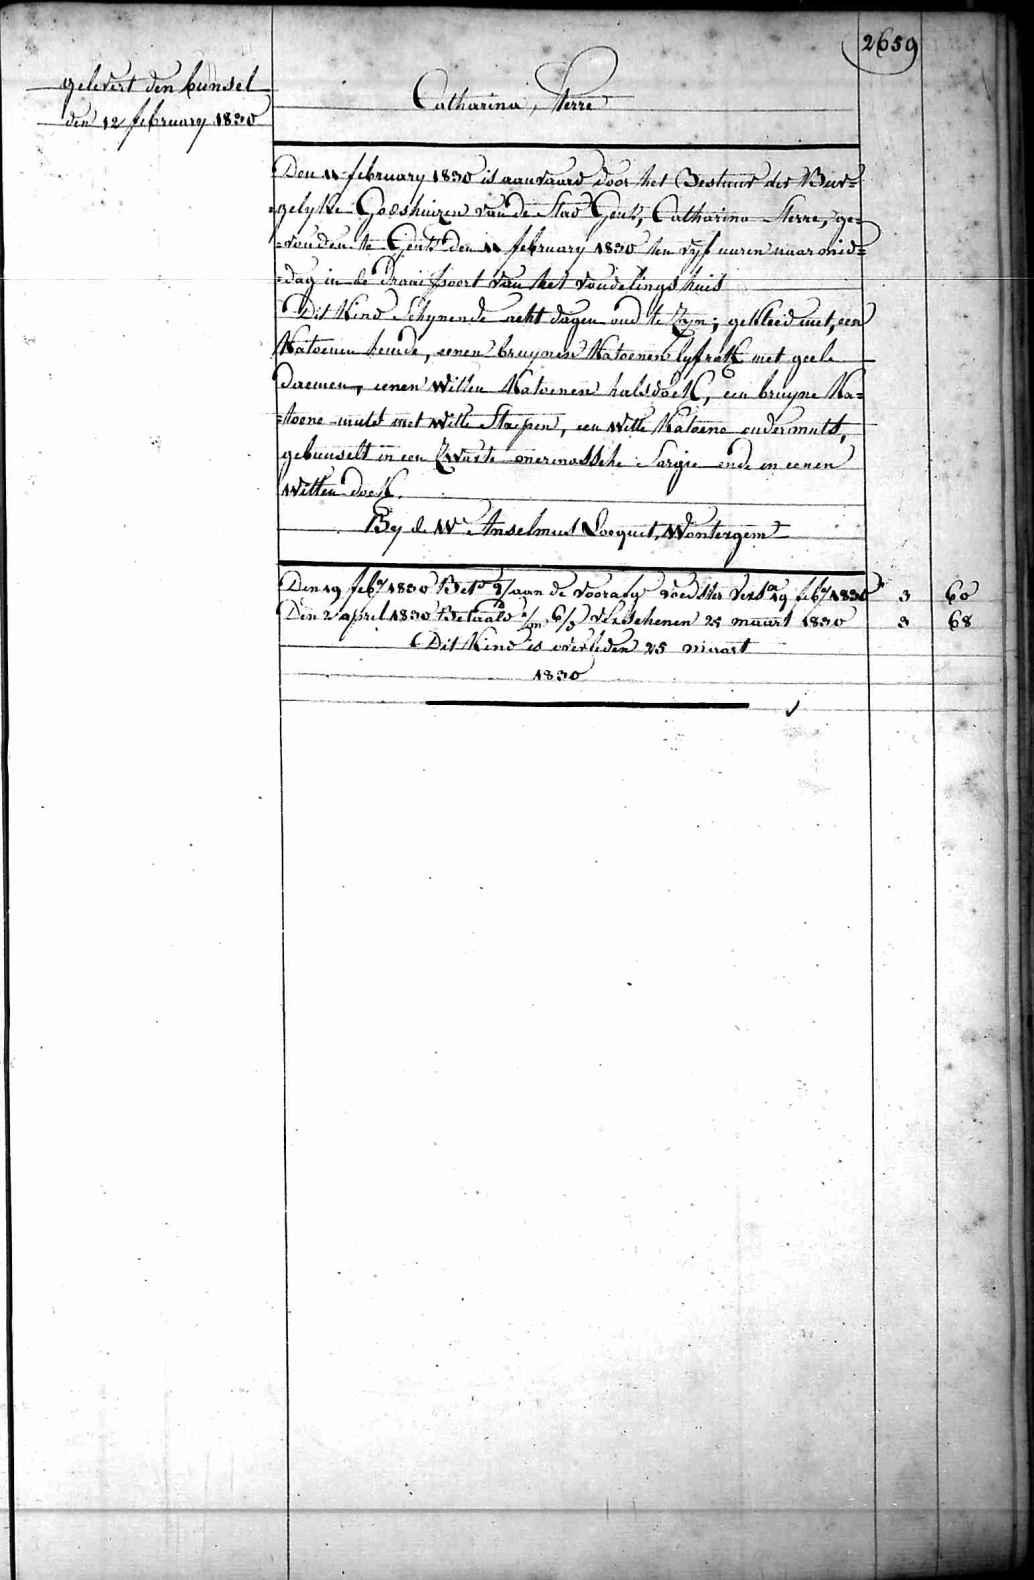 2659
gelevert den bunsel
den 12 february 1830
Catharina, Sterre
Den 11 february 1830 is aanvaard door het Bestuur der Bur=
=gelyke Godshuizen van de Stad Gent, Catharina Sterre, ge=
=vonden te Gent den 11 february 1830 ten vyf uuren naar mid=
=dag in de Draai poort van het vondelings huis
Dit Kind schynende acht dagen oud te Zyn; gekleed met, een
Katoenen hemde, eenen bruynen Katoenen lyfrok met geele
, eenen Witten Katoenen halsdoek, een bruyne Ka=
=toene muts met Witte Streepen, een Witte Katoene ondermuts,
gebunselt in een Zwarte Sargie ende in eenen
Witten doek.
By d. We Anselmus Locquet, Wontergem
Den 19 feby 1830 Bet.d aan de voedster versn 19 feby 1830 3 60
Den 2 april 1830 Betaald verschenen 25 maart 1830 3 68
Dit Kind is overleden 25 maart
1830